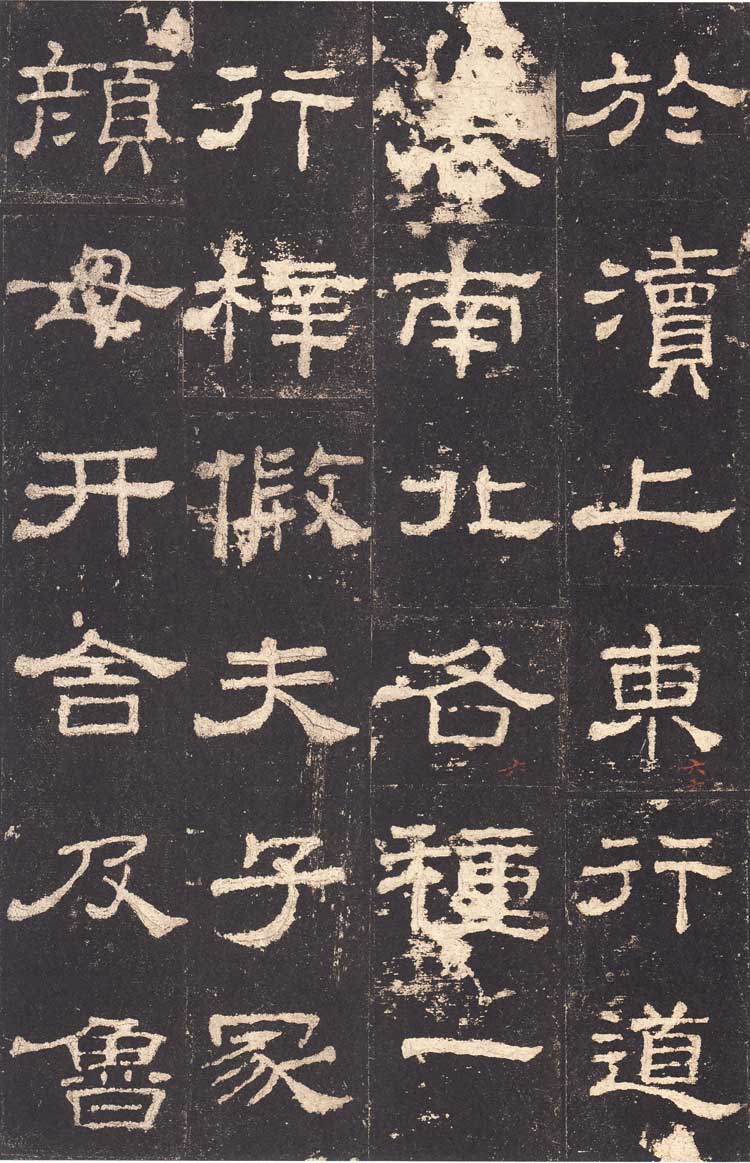 於瀆上東行道
南北各種一
行梓假夫子冢
顏母井舍及魯